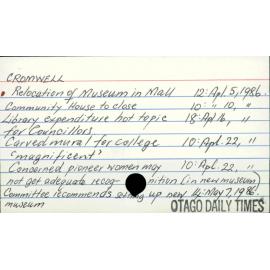 CROMWELL
• Relocation of Museum in Mall 12: Apl. 5, 1986.
Community House to close 10: " 10, "
Library expenditure hot topic 18: Apl 16, "
for Councillors
Carved mural for College 10: Apl. 22, "
"magnificent"
Concerned pioneer women may 10: Apl. 22, "
not get adequate recognition (in new museum)
Committee recommends up new 14: May 7, 1986.
museum
OTAGO DAILY TIMES